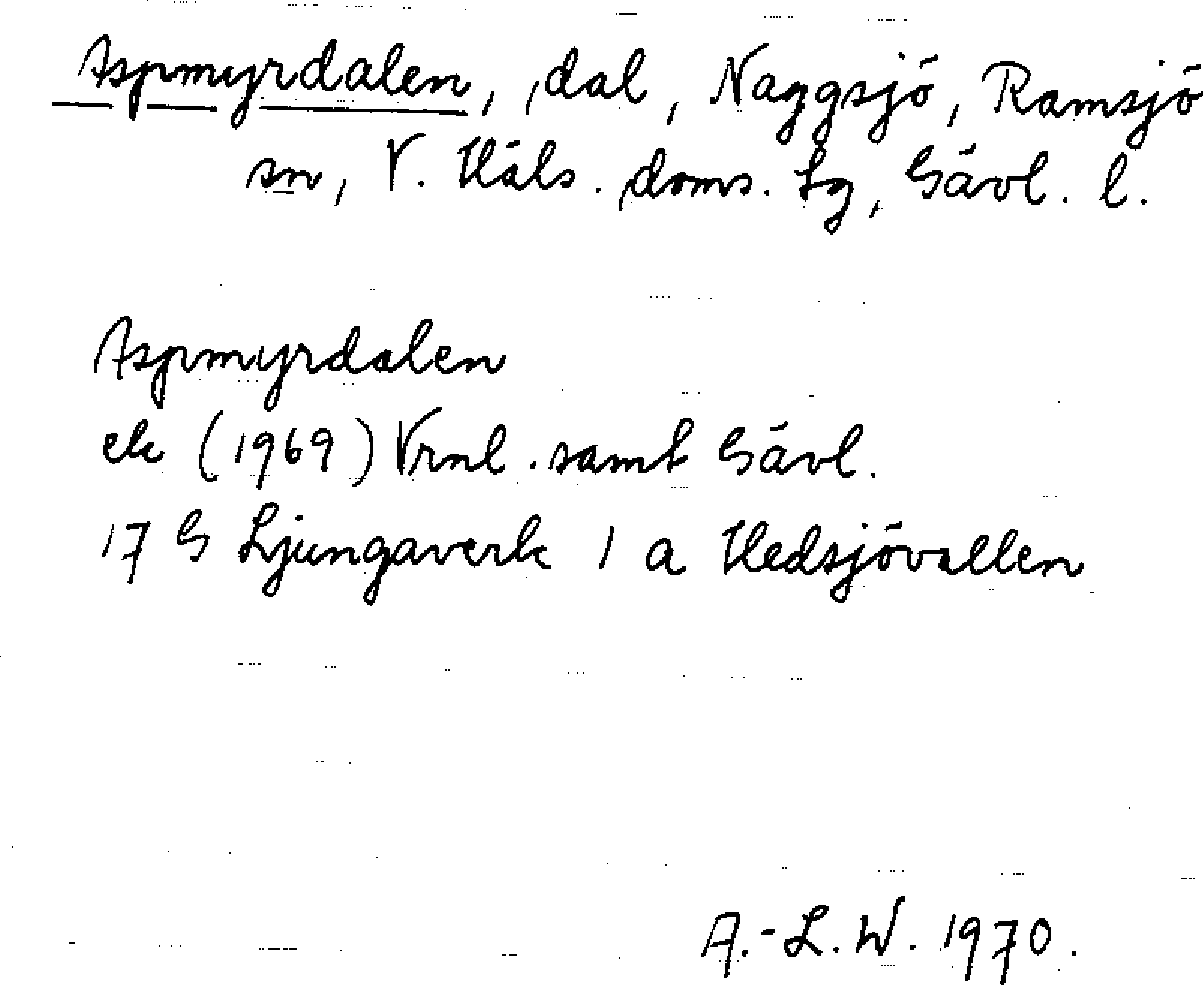 Aspmyrdalen, dal, Naggsjö, Ramsjö
sn, V. Häls. doms. tg, Gävl. l.
Aspmyrdalen
ek (1969) Vrml. samt Gävl.
17 G Ljungaverk 1 a Hedsjövallen
A.-L. W. 1970.